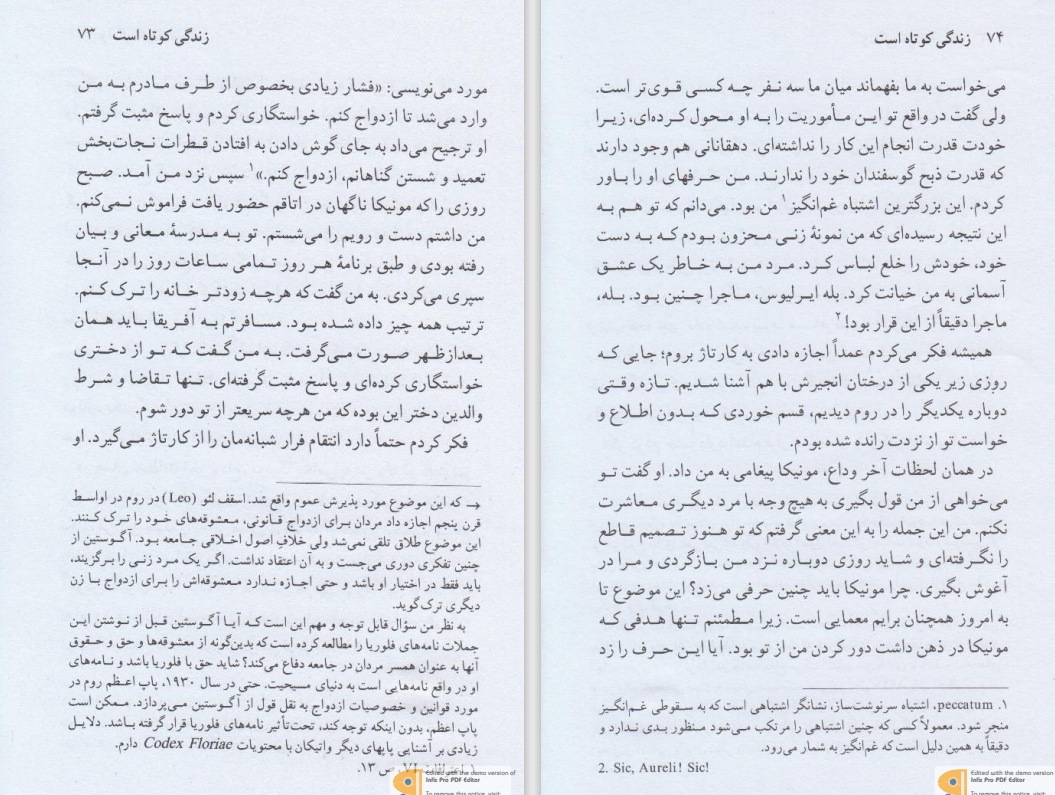 زندگی کوتاه است ۷۳
مورد می‌نویسی: «فشار زیادی بخصوص از طرف مادرم به من
وارد می‌شد تا ازدواج کنم. خواستگاری کردم و پاسخ مثبت گرفتم.
او ترجیح می‌داد به جای گوش دادن به افتادن قطرات نجات‌بخش
تعمید و شستن گناهانم، ازدواج کنم.»۱ سپس نزد من آمد. صبح
روزی را که مونیکا ناگهان در اتاقم حضور یافت فراموش نمی‌کنم.
من داشتم دست و رویم را می‌شستم. تو به مدرسهٔ معانی و بیان
رفته بودی و طبق برنامهٔ هر روز تمامی ساعات روز را در آنجا
سپری می‌کردی. به من گفت که هرچه زودتر خانه را ترک کنم.
ترتیب همه چیز داده شده بود. مسافرتم به آفریقا باید همان
بعدازظهر صورت می‌گرفت. به من گفت که تو از دختری
خواستگاری کرده‌ای و پاسخ مثبت گرفته‌ای. تنها تقاضا و شرط
والدین دختر این بوده که من هرچه سریعتر از تو دور شوم.
فکر کردم حتماً دارد انتقام فرار شبانه‌مان را از کارتاژ می‌گیرد. او
→ که این موضوع مورد پذیرش عموم واقع شد. اسقف لئو (Leo) در روم در اواسط
قرن پنجم اجازه داد مردان برای ازدواج قانونی، معشوقه‌های خود را ترک کنند.
این موضوع طلاق تلقی نمی‌شد ولی خلافِ اصول اخلاقی جامعه بود. آگوستین از
چنین تفکری دوری می‌جست و به آن اعتقاد نداشت. اگر یک مرد زنی را برگزیند،
باید فقط در اختیار او باشد و حتی اجازه ندارد معشوقه‌اش را برای ازدواج با زن
دیگری ترک گوید.
به نظر من سؤال قابل توجه و مهم این است که آیا آگوستین قبل از نوشتن این
جملات نامه‌های فلوریا را مطالعه کرده است که بدین‌گونه از معشوقه‌ها و حق و حقوق
آنها به عنوان همسر مردان در جامعه دفاع می‌کند؟ شاید حق با فلوریا باشد و نامه‌های
او در واقع نامه‌هایی است به دنیای مسیحیت. حتی در سال ۱۹۳۰، پاپ اعظم روم در
مورد قوانین و خصوصیات ازدواج به نقل قول از آگوستین می‌پردازد. ممکن است
پاپ اعظم، بدون اینکه توجه کند، تحت‌تأثیر نامه‌های فلوریا قرار گرفته باشد. دلایل
زیادی بر آشنایی پاپهای دیگر واتیکان با محتویات Codex Floriae دارم.
۱. اعترافات VI، ص ۱۳.
Edited with the demo version of
Infix Pro PDF Editor
To remove this notice, visit:
۷۴ زندگی کوتاه است
می‌خواست به ما بفهماند میان ما سه نفر چه کسی قوی‌تر است.
ولی گفت در واقع تو این مأموریت را به او محول کرده‌ای، زیرا
خودت قدرت انجام این کار را نداشته‌ای. دهقانانی هم وجود دارند
که قدرت ذبح گوسفندان خود را ندارند. من حرفهای او را باور
کردم. این بزرگترین اشتباه غم‌انگیز۱ من بود. می‌دانم که تو هم به
این نتیجه رسیده‌ای که من نمونهٔ زنی محزون بودم که به دست
خود، خودش را خلع لباس کرد. مرد من به خاطر یک عشق
آسمانی به من خیانت کرد. بله ایرلیوس، ماجرا چنین بود. بله،
ماجرا دقیقاً از این قرار بود!۲
همیشه فکر می‌کردم عمداً اجازه دادی به کارتاژ بروم؛ جایی که
روزی زیر یکی از درختان انجیرش با هم آشنا شدیم. تازه وقتی
دوباره یکدیگر را در روم دیدیم، قسم خوردی که بدون اطلاع و
خواست تو از نزدت رانده شده بودم.
در همان لحظات آخر وداع، مونیکا پیغامی به من داد. او گفت تو
می‌خواهی از من قول بگیری به هیچ‌وجه با مرد دیگری معاشرت
نکنم. من این جمله را به این معنی گرفتم که تو هنوز تصمیم قاطع
را نگرفته‌ای و شاید روزی دوباره نزد من بازگردی و مرا در
آغوش بگیری. چرا مونیکا باید چنین حرفی می‌زد؟ این موضوع تا
به امروز همچنان برایم معمایی است. زیرا مطمئنم تنها هدفی که
مونیکا در ذهن داشت دور کردن من از تو بود. آیا این حرف را زد
۱. peccatum، اشتباه سرنوشت‌ساز، نشانگر اشتباهی است که به سقوطی غم‌انگیز
منجر شود. معمولاً کسی که چنین اشتباهی را مرتکب می‌شود منظور بدی ندارد و
دقیقاً به همین دلیل است که غم‌انگیز به شمار می‌رود.
2. Sic, Aureli! Sic!
Edited with the demo version
Infix Pro PDF Editor
To remove this notice, visit: